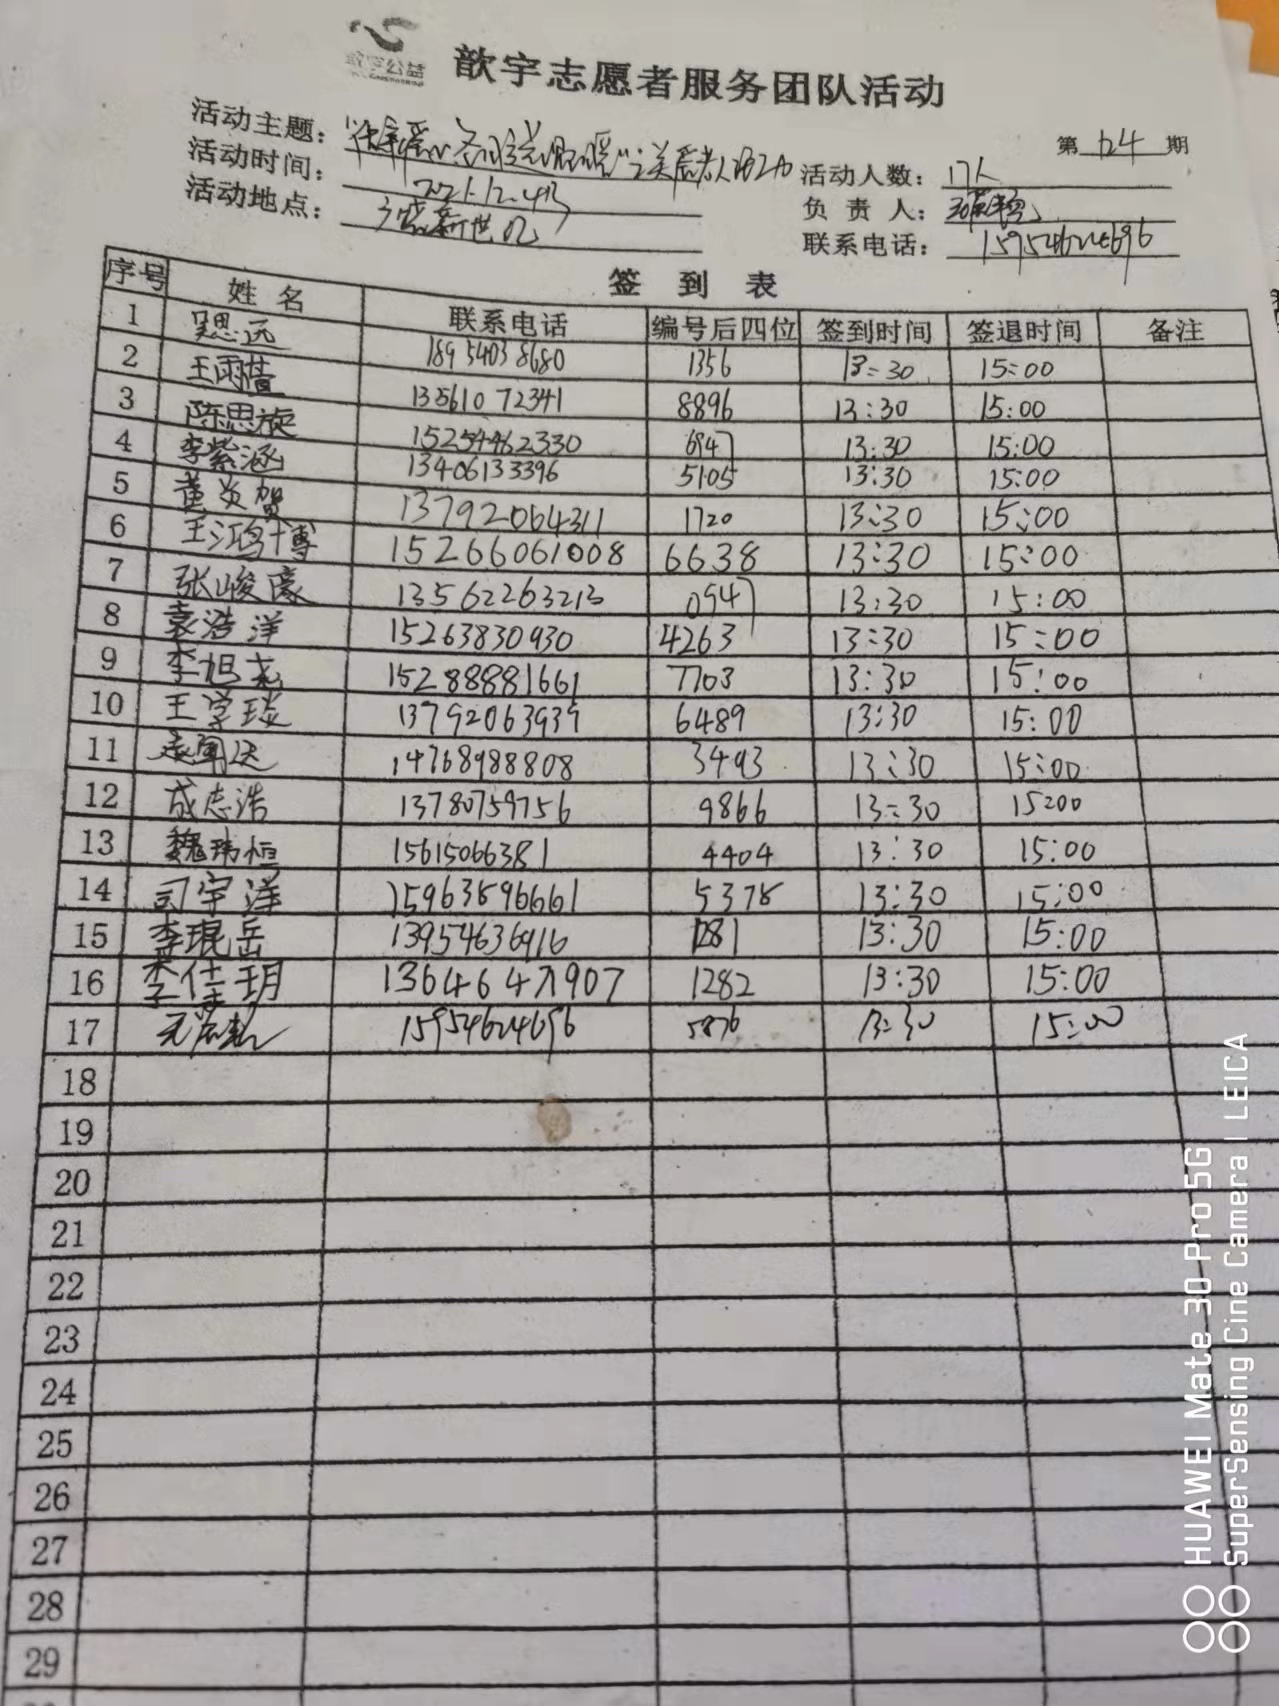 歆宇公益
歆宇志愿者服务团队活动
第 124 期
活动主题：
活动人数：17人
活动时间：2021.12.4日
负责人：
活动地点：广盛新世纪
联系电话：15954624696
签到表
序号 姓名 联系电话 编号后四位 签到时间 签退时间 备注
1 吴思远 18954038680 1356 13:30 15:00
2 王雨萱 13561072341 8896 13:30 15:00
3 陈思旋 15254462330 6947 13:30 15:00
4 李紫涵 13406133396 5105 13:30 15:00
5 黄炎贺 13792064311 1720 13:30 15:00
6 王鸿博 15266061008 6638 13:30 15:00
7 张峻豪 13562263213 0947 13:30 15:00
8 袁浩洋 15263830930 4263 13:30 15:00
9 李旭尧 15288881661 7703 13:30 15:00
10 王学琰 13792063939 6489 13:30 15:00
11 14768988808 3493 13:30 15:00
12 成志浩 13780759756 9866 13:30 15:00
13 魏玮恒 15615066381 4404 13:30 15:00
14 司宇洋 15963896661 5378 13:30 15:00
15 李琨岳 13954636916 1281 13:30 15:00
16 李佳玥 13646471907 1282 13:30 15:00
17 15954624696 5876 13:30 15:00
18
19
20
21
22
23
24
25
26
27
28
29
HUAWEI Mate 30 Pro 5G
SuperSensing Cine Camera | LEICA